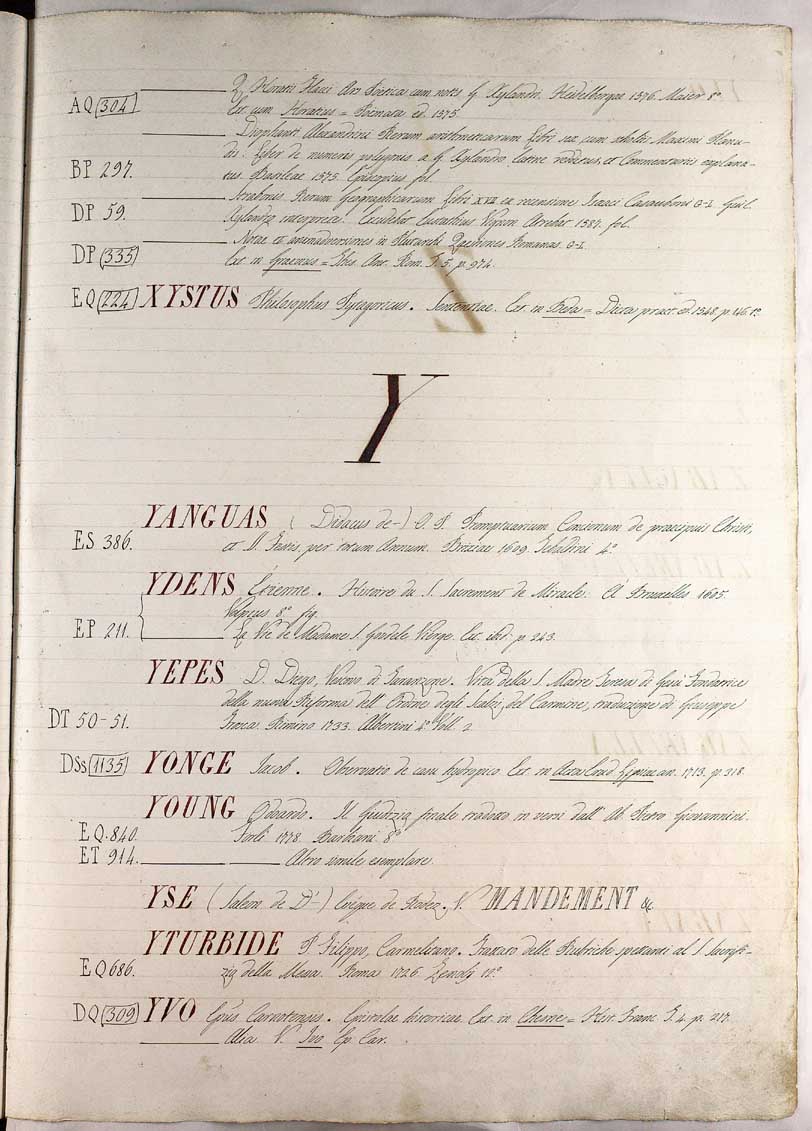 Q. Horatii Flacci Ars Poetica cum notis G. Xylandri. Heidelbergae 1576. Maier 8º
AQ 304 Ext. cum Horatius = Poemata ed. 1575.
Diophanti Alexandrini Rerum arithmeticarum Libri sex cum scholiis Maximi Planu-
dis: Liber de numeris polygonis a G. Xylandro latine redditus, et Commentariis explana-
BP 297. tus. Basileae 1575. Episcopius fol.
Strabonis Rerum Geographicarum Libri XVII ex recensione Isaaci Casauboni G-L Guil.
DP 59. Xylandro interprete. Excudebat Eustathius Vignon Atrebat 1587. fol.
Notae et animadversiones in Plutarchi Quaestiones Romanas. G-L
DP 335 Ext. in Graevius = Thes. Ant. Rom. T. 5. p. 974.
EQ 224 XYSTUS Philosophus Pytagoricus. Sententiae. Ext. in Beda = Dicta pract. ed. 1548. p. 146. tº.
Y
YANGUAS (Didacus de-) O. P. Promptuarium Concionum de praecipuis Christi,
ES 386. et per totum Annum. Brixiae 1609. 4º
YDENS Étienne. Histoire du S. Sacrement de Miracle. A Bruxelles 1605.
Velpius 8º fig.
EP 211. La Vie de Madame S. Gudele Vierge. Ext. ibid. p. 243.
YEPES D. Diego, Vescovo di Taranzone. Vita della S. Madre Teresa di Gesù Fondatrice
della nuova Reforma dell' Ordine degli Scalzi del Carmine, traduzione di Giuseppe
DT 50-51. Rimino 1733. Albertini 4º Voll. 2.
DSs 1135 YONGE Jacob. Observatio de casu hydropico. Ext. in Acta Erud. Lipsiae an. 1713. p. 318.
YOUNG Odoardo. Il Giudizio finale tradotto in versi dall' Ab. Pietro Giovannini.
EQ. 840. Forlì 1778. Barbiani 8º
ET 914. Altro simile esemplare.
YSE (Saleon de D'-) Evêque de Rodez. V. MANDEMENT &c
YTURBIDE P. Filippo, Carmelitano. Trattato delle Rubriche spettanti al S. Sacrifi-
EQ 686. zio della Messa. Roma 1726. Zenobj 12º.
DQ 309 YVO Epus Carnotensis. Epistolae historicae. Ext. in Chesne = Hist. Franc. T. 4. p. 217.
Alia V. Ivo Ep. Car.